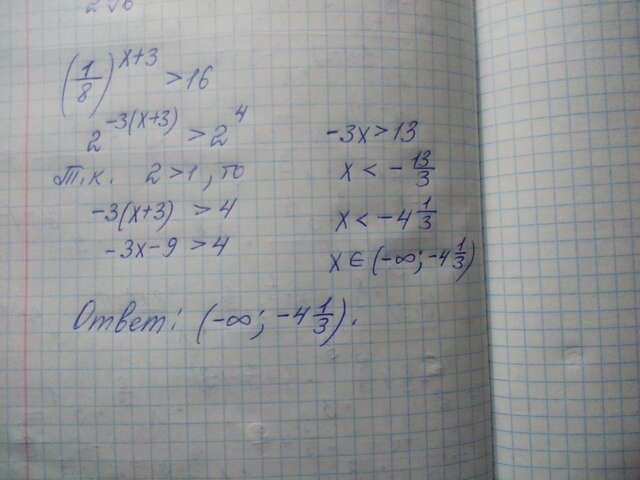 2√6
(1/8)^(x+3) > 16
2^(-3(x+3)) > 2^4
Т.к. 2 > 1, то
-3(x+3) > 4
-3x-9 > 4
-3x > 13
x < -13/3
x < -4 1/3
x ∈ (-∞; -4 1/3)
Ответ: (-∞; -4 1/3).